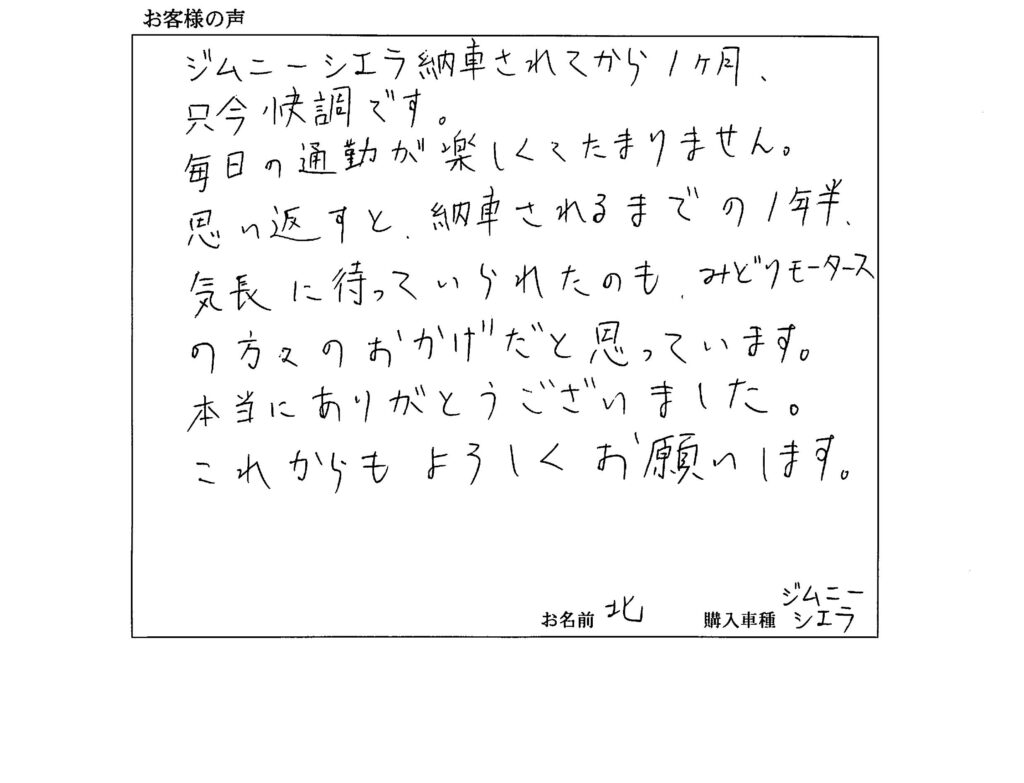 お客様の声
ジムニーシエラ納車されてから1ヶ月、
只今快調です。
毎日の通勤が楽しくてたまりません。
思い返すと、納車されるまでの1年半、
気長に待っていられたのも、みどりモータース
の方々のおかげだと思っています。
本当にありがとうございました。
これからもよろしくお願いします。
お名前 北 購入車種 ジムニー
シエラ